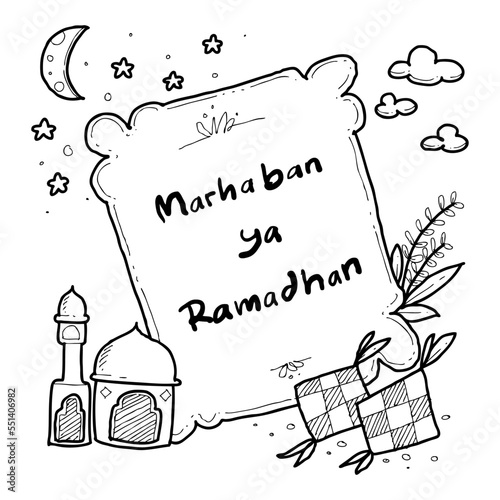 Marhaban
ya
Ramadhan
Adobe Stock | #551406982